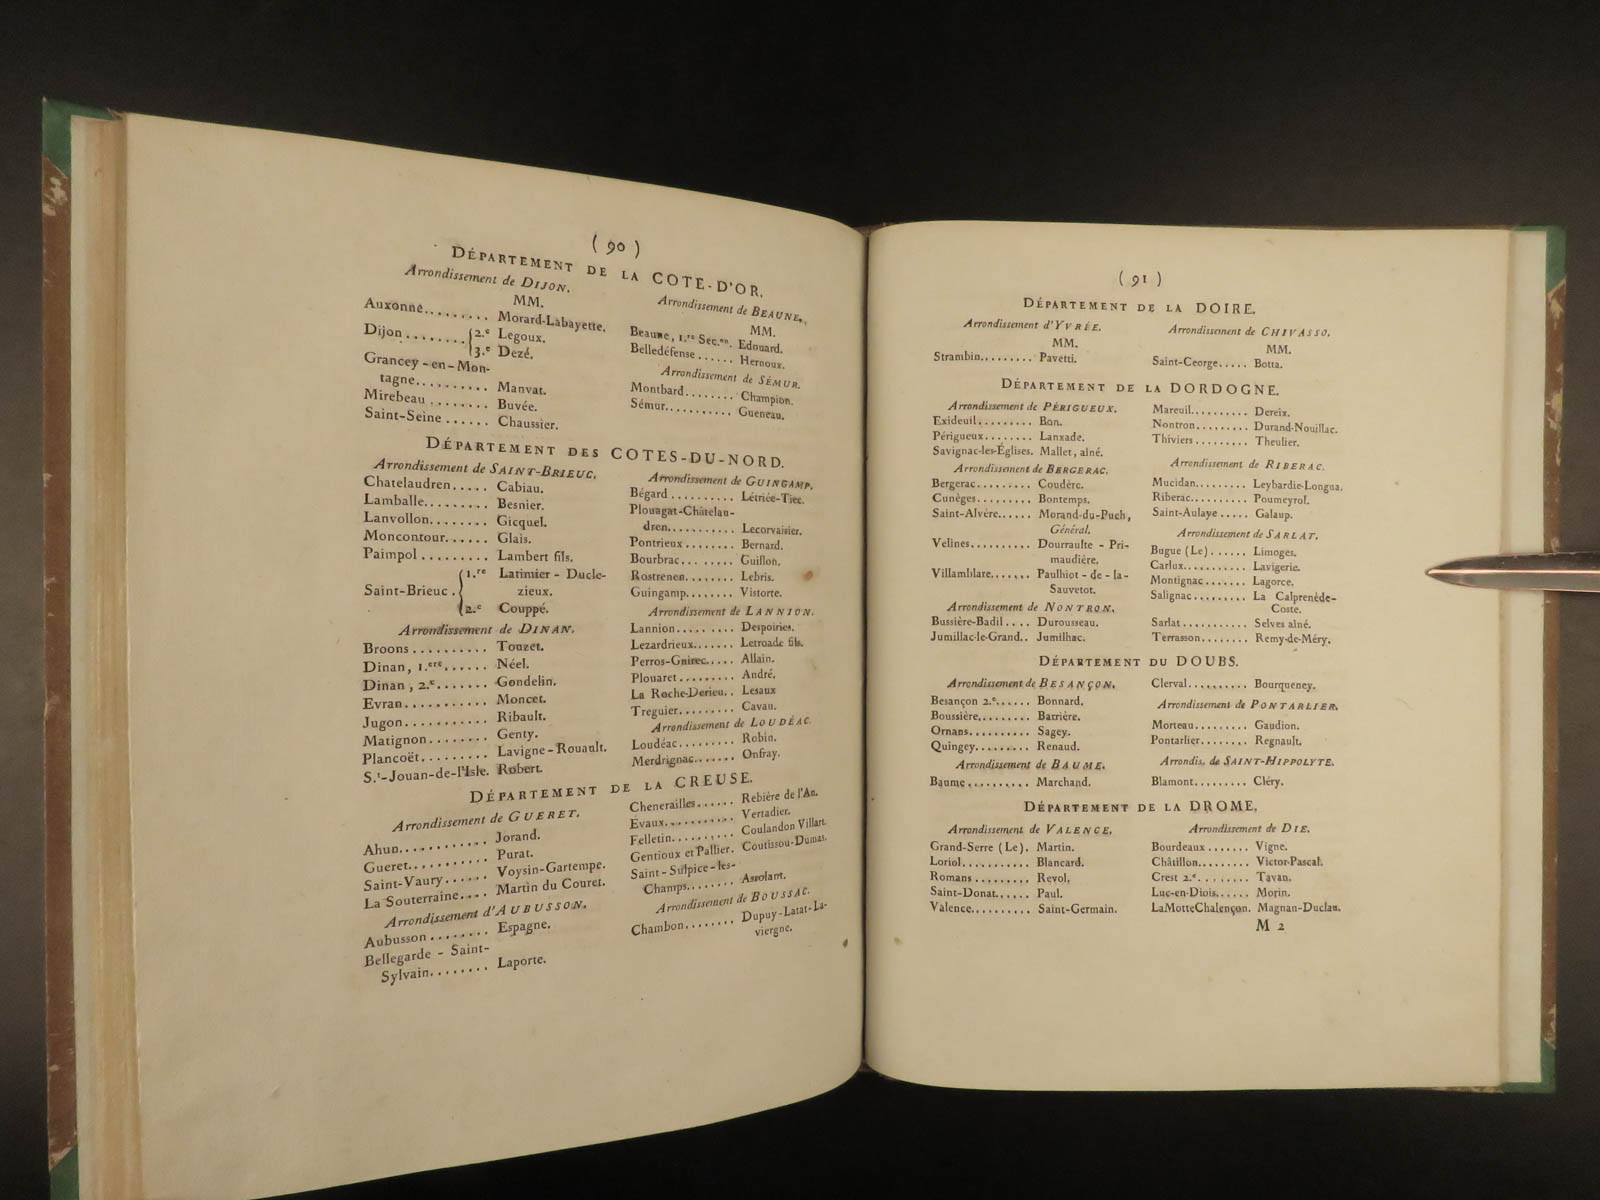 ( 90 )
DÉPARTEMENT DE LA COTE-D'OR.
Arrondissement de DIJON.
MM.
Auxonne......... Morard-Labayette.
Dijon........ {2.e Legoux.
{3.e Dezé.
Grancey-en-Mon-
tagne.......... Manvat.
Mirebeau ........ Buvée.
Saint-Seine ...... Chaussier.
Arrondissement de BEAUNE.
MM.
Beaune, 1.re Sec.en. Edouard.
Belledéfense ...... Hernoux.
Arrondissement de SÉMUR.
Montbard........ Champion.
Sémur........... Gueneau.
DÉPARTEMENT DES COTES-DU-NORD.
Arrondissement de SAINT-BRIEUC.
Chatelaudren..... Cabiau.
Lamballe......... Besnier.
Lanvollon........ Gicquel.
Moncontour...... Glais.
Paimpol ......... Lambert fils.
Saint-Brieuc. {1.re Latimier-Ducle-
zieux.
{2.e Couppé.
Arrondissement de DINAN.
Broons .......... Touzet.
Dinan, 1.ere...... Néel.
Dinan, 2.e....... Gondelin.
Evran........... Moncet.
Jugon........... Ribault.
Matignon........ Genty.
Plancoët......... Lavigne-Rouault.
S.t-Jouan-de-l'Isle. Robert.
Arrondissement de GUINGAMP.
Bégard .......... Létriée-Tiec.
Plouagat-Châtelau-
dren........... Lecorvaisier.
Pontrieux........ Bernard.
Bourbrac ........ Guillon.
Rostrenen........ Lebris.
Guingamp....... Vistorte.
Arrondissement de LANNION.
Lannion......... Despoiries.
Lezardrieux....... Letroade fils.
Perros-Guirec..... Allain.
Plouaret ......... André.
La Roche-Derieu.. Lesaux
Treguier......... Cavau.
Arrondissement de LOUDÉAC.
Loudéac......... Robin.
Merdrignac....... Onfray.
DÉPARTEMENT DE LA CREUSE.
Arrondissement de GUERET.
Ahun........... Jorand.
Gueret.......... Purat.
Saint-Vaury ...... Voysin-Gartempe.
La Souterraine.... Martin du Couret.
Arrondissement d'AUBUSSON.
Aubusson ........ Espagne.
Bellegarde - Saint-
Sylvain........ Laporte.
Chenerailles...... Rebière de l'An.
Évaux.......... Vertadier.
Felletin.......... Coulandon Villart.
Gentioux et Pallier. Coutissou-Dumas.
Saint-Sulpice-les-
Champs........ Assolant.
Arrondissement de BOUSSAC.
Chambon........ Dupuy-Latat-La-
viergne.
( 91 )
DÉPARTEMENT DE LA DOIRE.
Arrondissement d'YVRÉE.
MM.
Strambin......... Pavetti.
Arrondissement de CHIVASSO.
MM.
Saint-George..... Botta.
DÉPARTEMENT DE LA DORDOGNE.
Arrondissement de PÉRIGUEUX.
Exideuil......... Bon.
Périgueux........ Lanxade.
Savignac-les-Églises. Mallet, aîné.
Arrondissement de BERGERAC.
Bergerac......... Coudère.
Cunèges......... Bontemps.
Saint-Alvère...... Morand-du-Puch,
Général.
Velines.......... Dourraulte - Pri-
maudière.
Villamblare....... Paulhiot-de-la-
Sauvetot.
Arrondissement de NONTRON.
Bussière-Badil.... Durousseau.
Jumillac-le-Grand.. Jumilhac.
Mareuil.......... Dereix.
Nontron......... Durand-Nouillac.
Thiviers ......... Theulier.
Arrondissement de RIBERAC.
Mucidan......... Leybardie-Longua.
Riberac.......... Poumeyrol.
Saint-Aulaye ..... Galaup.
Arrondissement de SARLAT.
Bugue (Le) ...... Limoges.
Carlux.......... Lavigerie.
Montignac....... Lagorce.
Salignac......... La Calprenède-
Coste.
Sarlat........... Selves aîné.
Terrasson........ Remy-de-Méry.
DÉPARTEMENT DU DOUBS.
Arrondissement de BESANÇON.
Besançon 2.e...... Bonnard.
Boussière......... Barrière.
Ornans.......... Sagey.
Quingey......... Renaud.
Arrondissement de BAUME.
Baume .......... Marchand.
Clerval.......... Bourqueney.
Arrondissement de PONTARLIER.
Morteau......... Gaudion.
Pontarlier........ Regnault.
Arrondis. de SAINT-HIPPOLYTE.
Blamont......... Cléry.
DÉPARTEMENT DE LA DROME.
Arrondissement de VALENCE.
Grand-Serre (Le). Martin.
Loriol........... Blancard.
Romans ......... Revol.
Saint-Donat...... Paul.
Valence.......... Saint-Germain.
Arrondissement de DIE.
Bourdeaux ....... Vigne.
Châtillon........ Victor-Pascal.
Crest 2.e......... Tavan.
Luc-en-Diois..... Morin.
LaMotteChalençon. Magnan-Duclau.
M 2